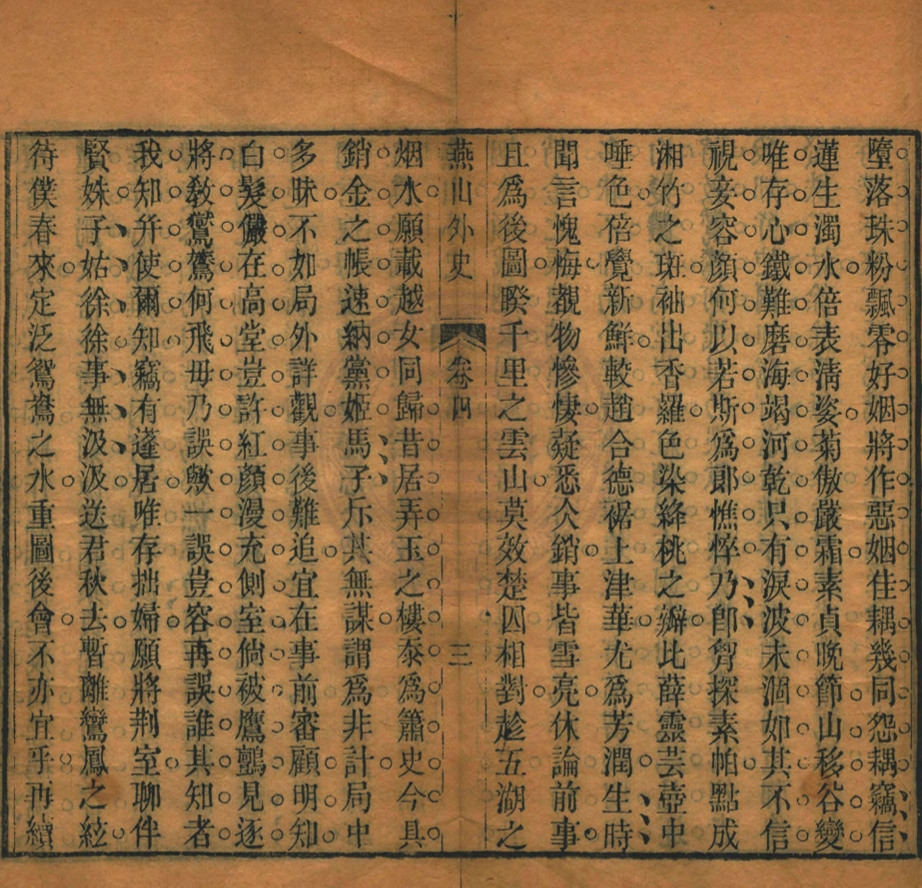 墮落珠粉飄零好姻將作惡姻佳耦幾同怨耦竊信
蓮生濁水倍表淸姿菊傲嚴霜素貞晚節山移谷變
唯存心鐵難磨海竭河乾只有淚波未涸如其不信
視妾容顏何以若斯爲郞憔悴乃卽匋探素帕點成
湘竹之斑袖出香羅色染絳桃之瓣比薛靈芸壺中
唾色倍覺新鮮較趙合德裾上津華尤爲芳潤生時
聞言愧悔覩物慘悽疑悉仌銷事皆雪亮休論前事
且爲後圖睽千里之雲山莫效楚囚相對趁五湖之
燕山外史 卷四 三
烟水願載越女同歸昔居弄玉之樓泰爲簫史今具
銷金之帳速納黨姬馬子斥其無謀謂爲非計局中
多昧不如局外詳觀事後難追宜在事前審顧明知
白髮儼在高堂豈許紅顏漫充側室倘被鷹鸇見逐
將敎鸑鷟何飛毋乃誤歟一誤豈容再誤誰其知者
我知幷使爾知竊有蓬居唯存拙婦願將荆室聊伴
賢姝子姑徐徐事無汲汲送君秋去暫離鸞鳳之絃
待僕春來定泛鴛鴦之水重圖後會不亦宜乎再續